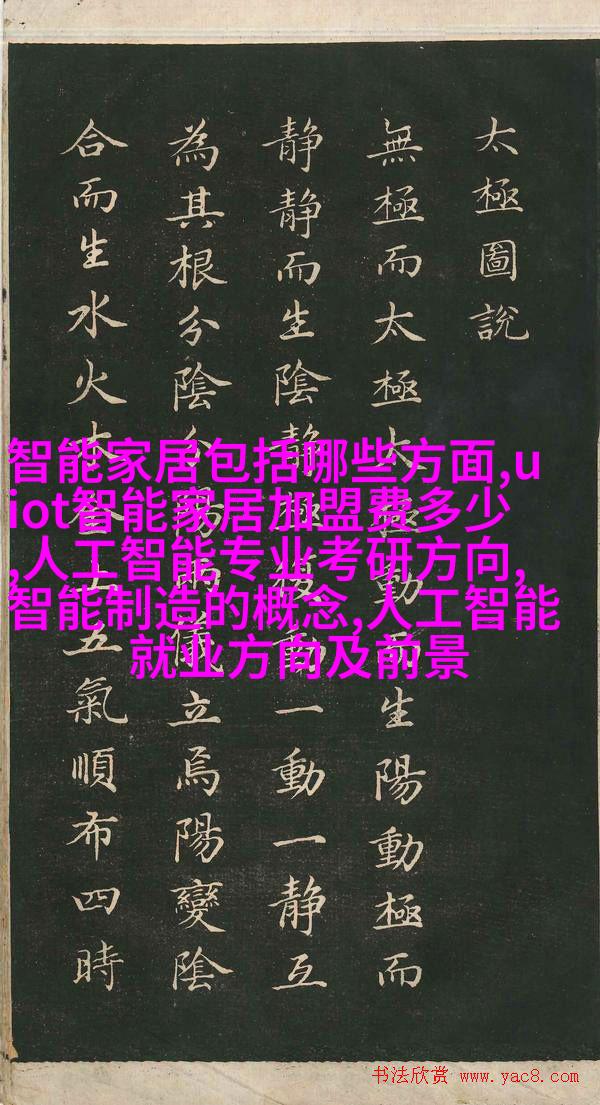 太極圖說
無極而太極太極動而生陽動極而
静静而生陰静極復動一動一静互
為其根分陰分陽兩儀立焉陽變陰
合而生水火木金土五氣順布四時
智能家居包括哪些方面,u
iot智能家居加盟费多少
,人工智能专业考研方向,
智能制造的概念,人工智能
就业方向及前景
书法欣赏 www.yac8.com